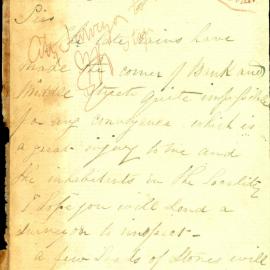 Sirs
The late rains have
made the corner of Bank and
Middle Street quite impassable
for any conveyance which is
a great injury to me and
the inhabitants in the locality
I hope you will send a
surveyor to inspect -
a few loads of stones will